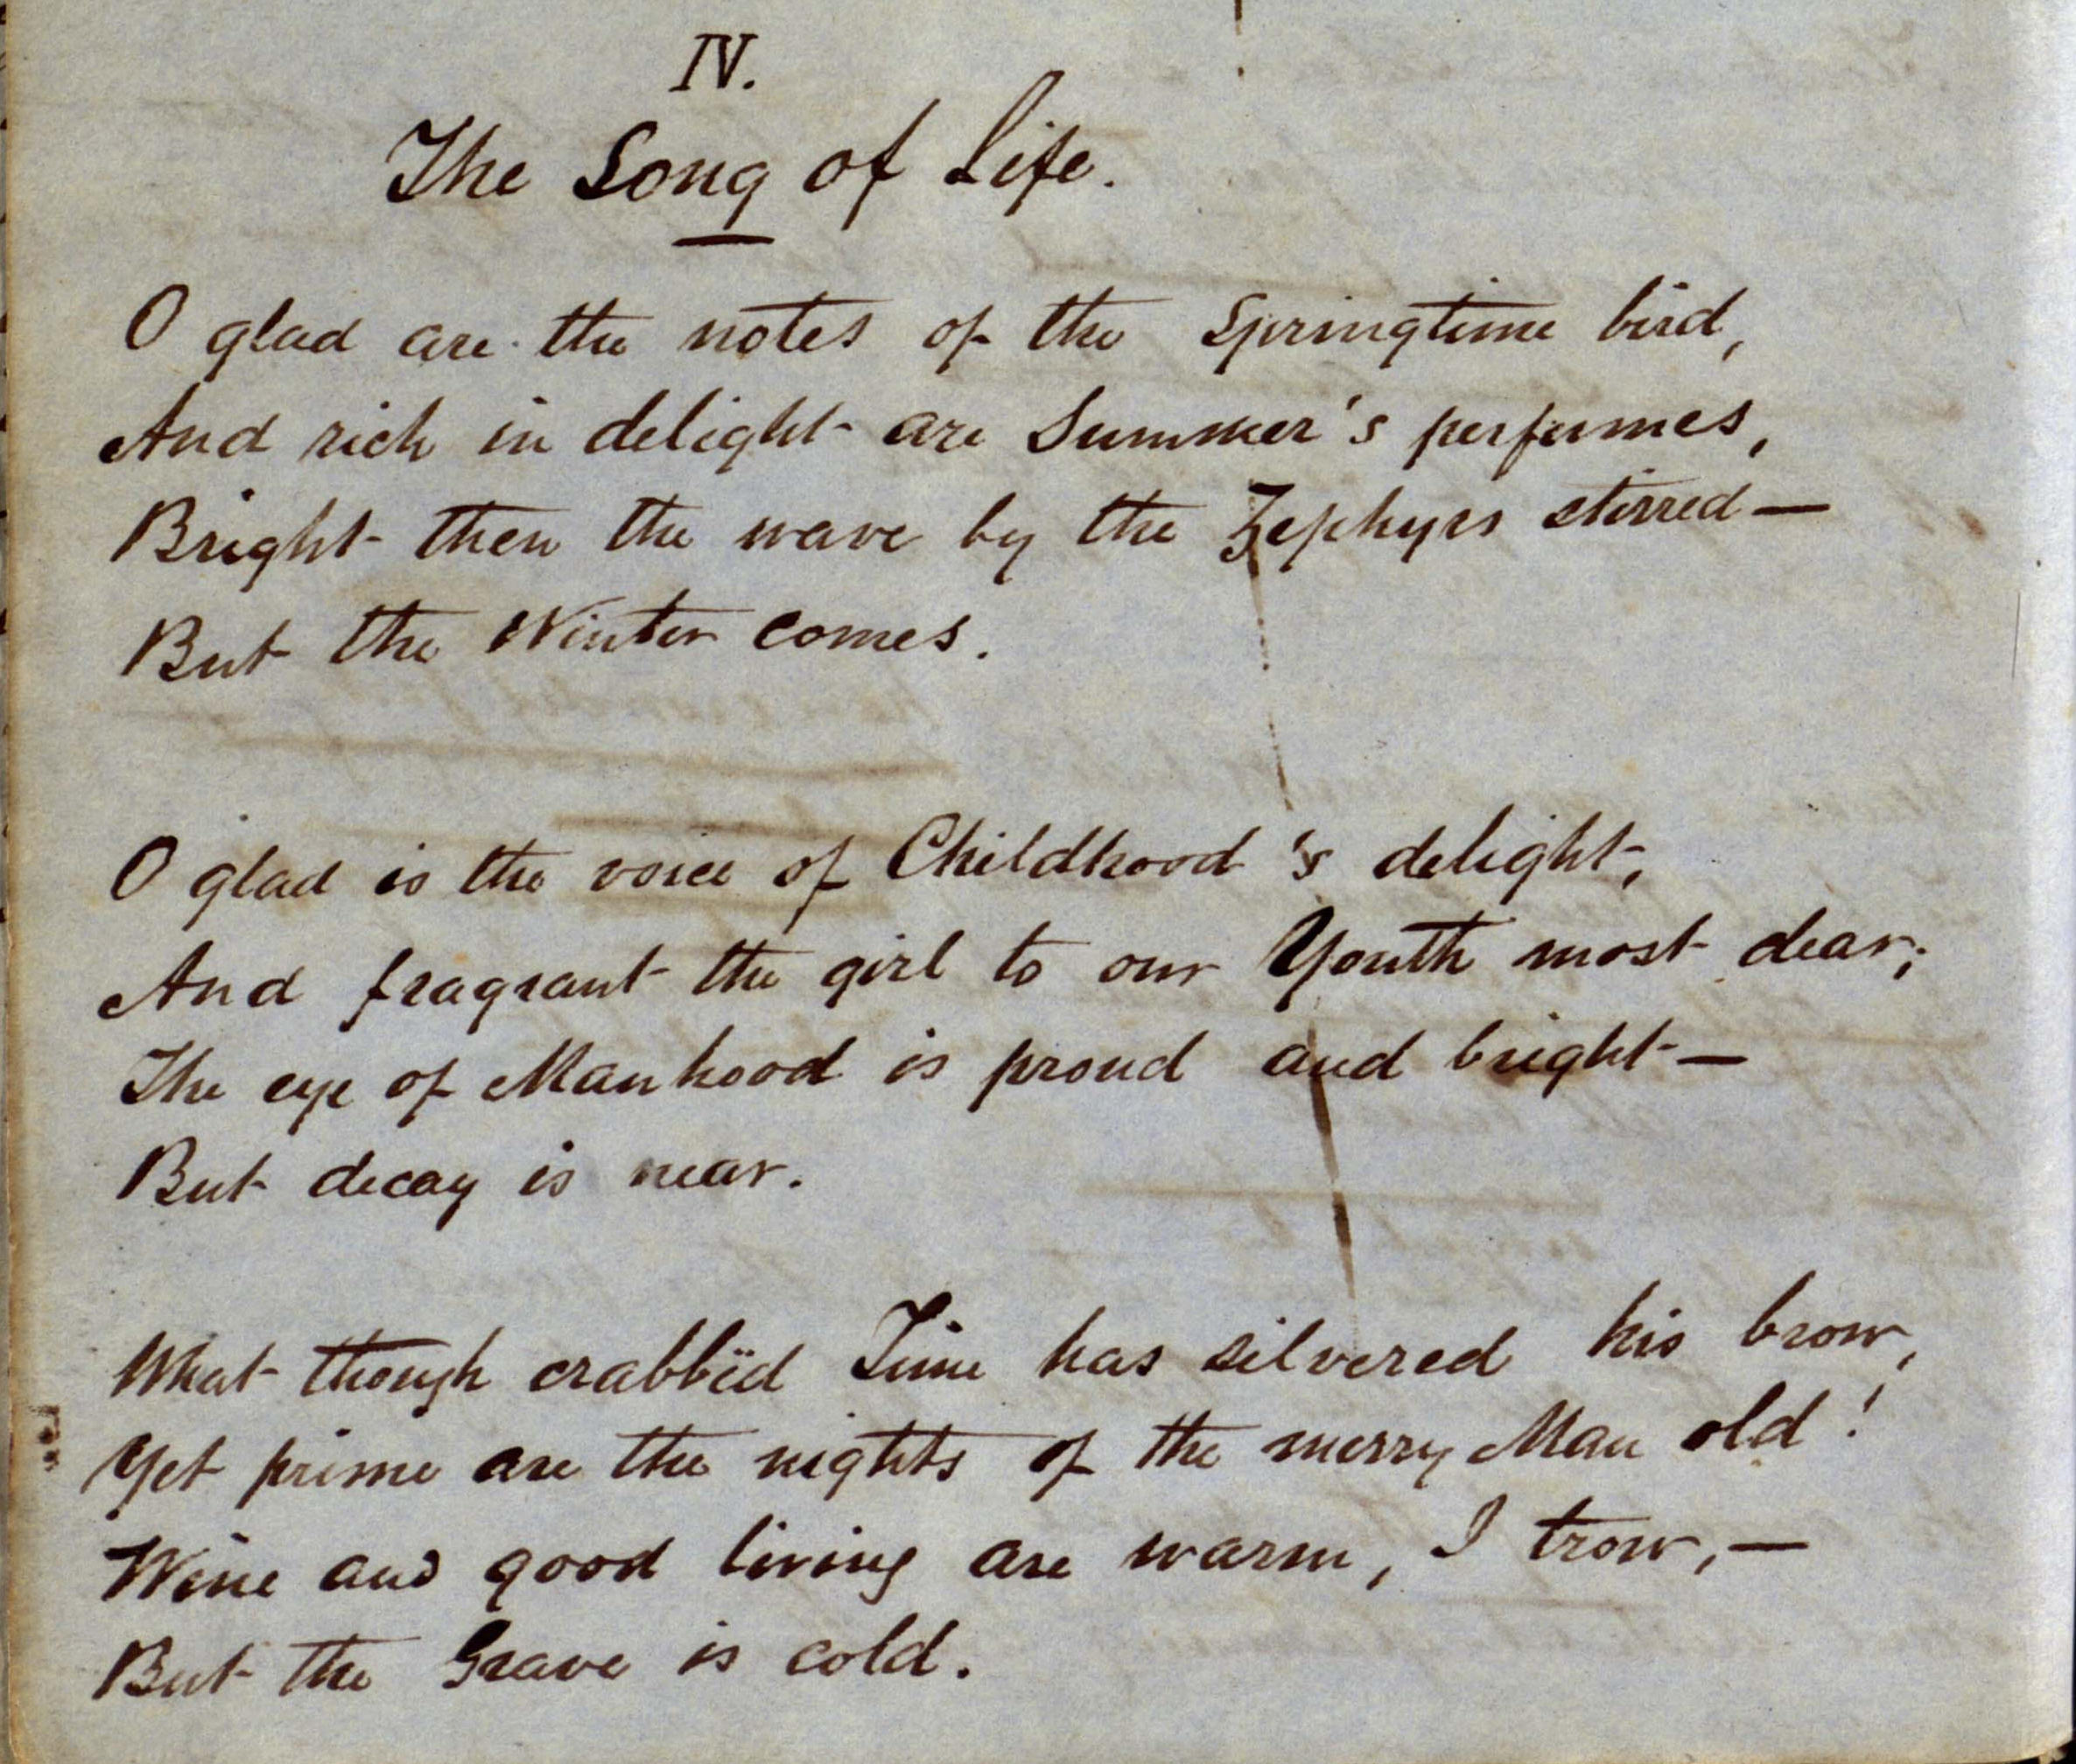 IV.
The Song of Life.
O glad are the notes of the Springtime bird,
And rich in delight are Summer's perfumes,
Bright then the wave by the Zephyrs stirred—
But the Winter comes.
O glad is the voice of Childhood's delight,
And fragrant the girl to our Youth most dear;
The eye of Manhood is proud and bright—
But decay is near.
What though crabbëd Time has silvered his brow,
Yet prime are the nights of the merry Man old!
Wine and good living are warm, I trow,—
But the Grave is cold.